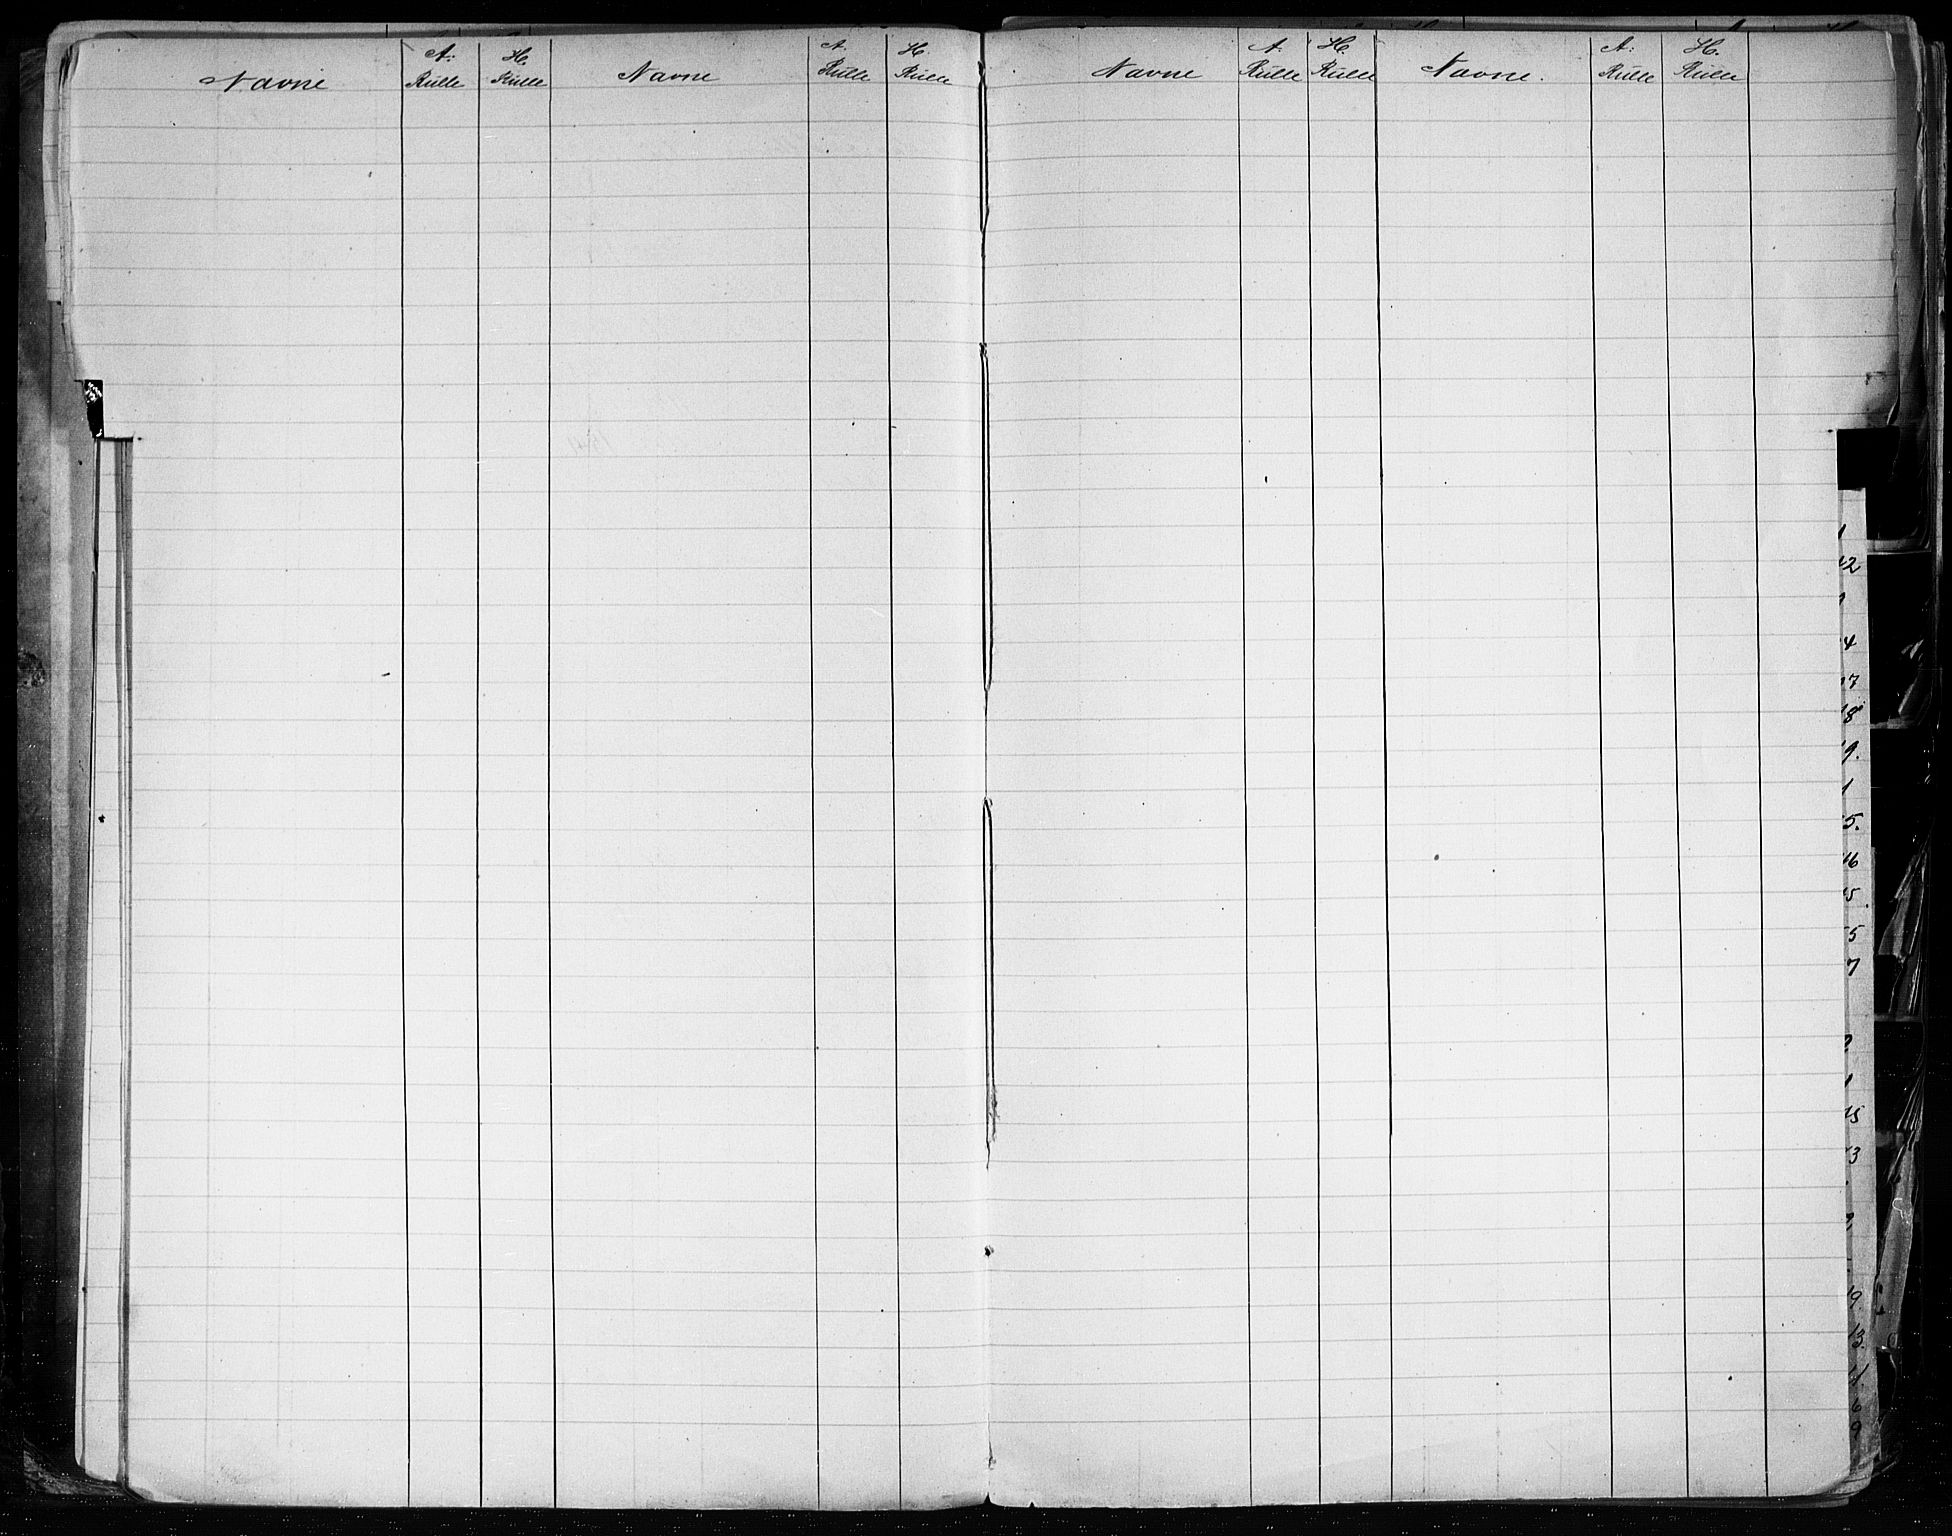 Navne A: Rulle H. Rulle Navne A. Rulle H. Rulle
Navne A. Rulle H. Rulle Navne. A: Rulle H. Rulle
2
4
7
8
9
1
5
6
2
5
7
2
3